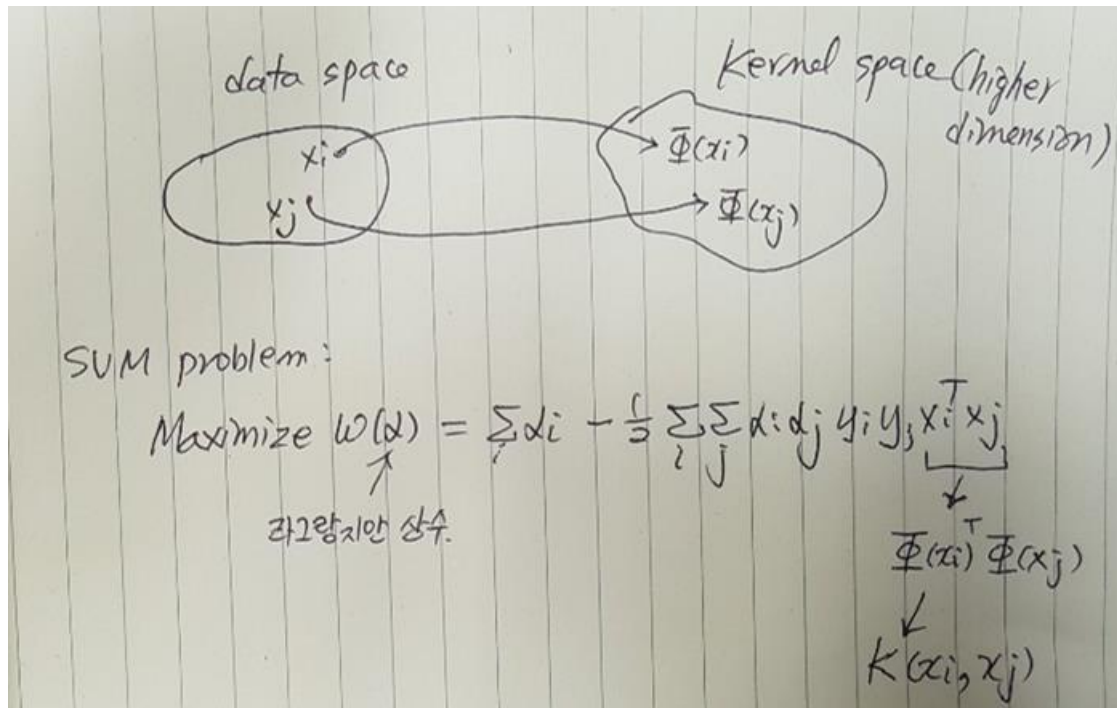 data space
Kernel space (higher
dimension)
xi
Φ(xi)
xj
Φ(xj)
SVM problem:
Maximize W(α) = Σ_i αi - 1/2 Σ_i Σ_j αi αj yi yj xi^T xj
라그랑지안 상수.
Φ(xi)^T Φ(xj)
K(xi, xj)